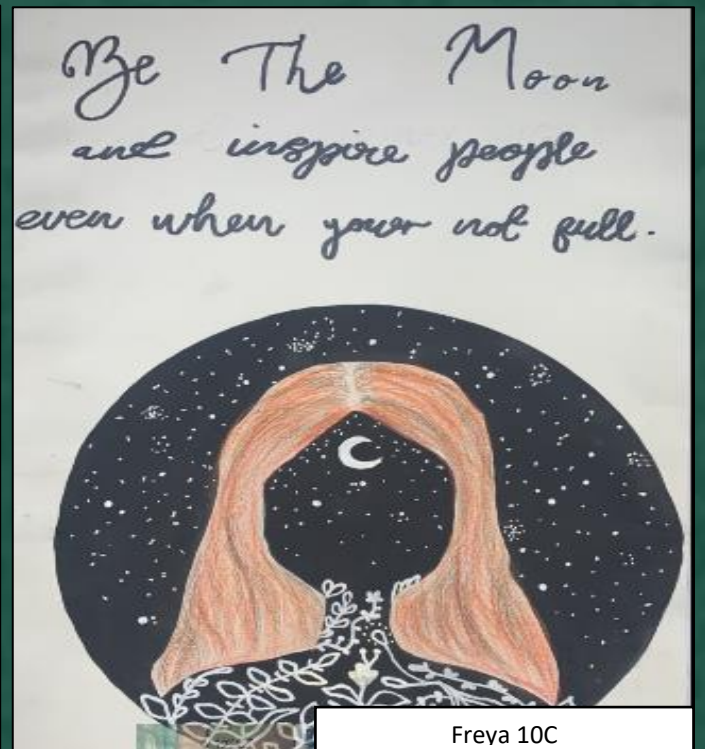 Be The Moon
and inspire people
even when your not full.
Freya 10C